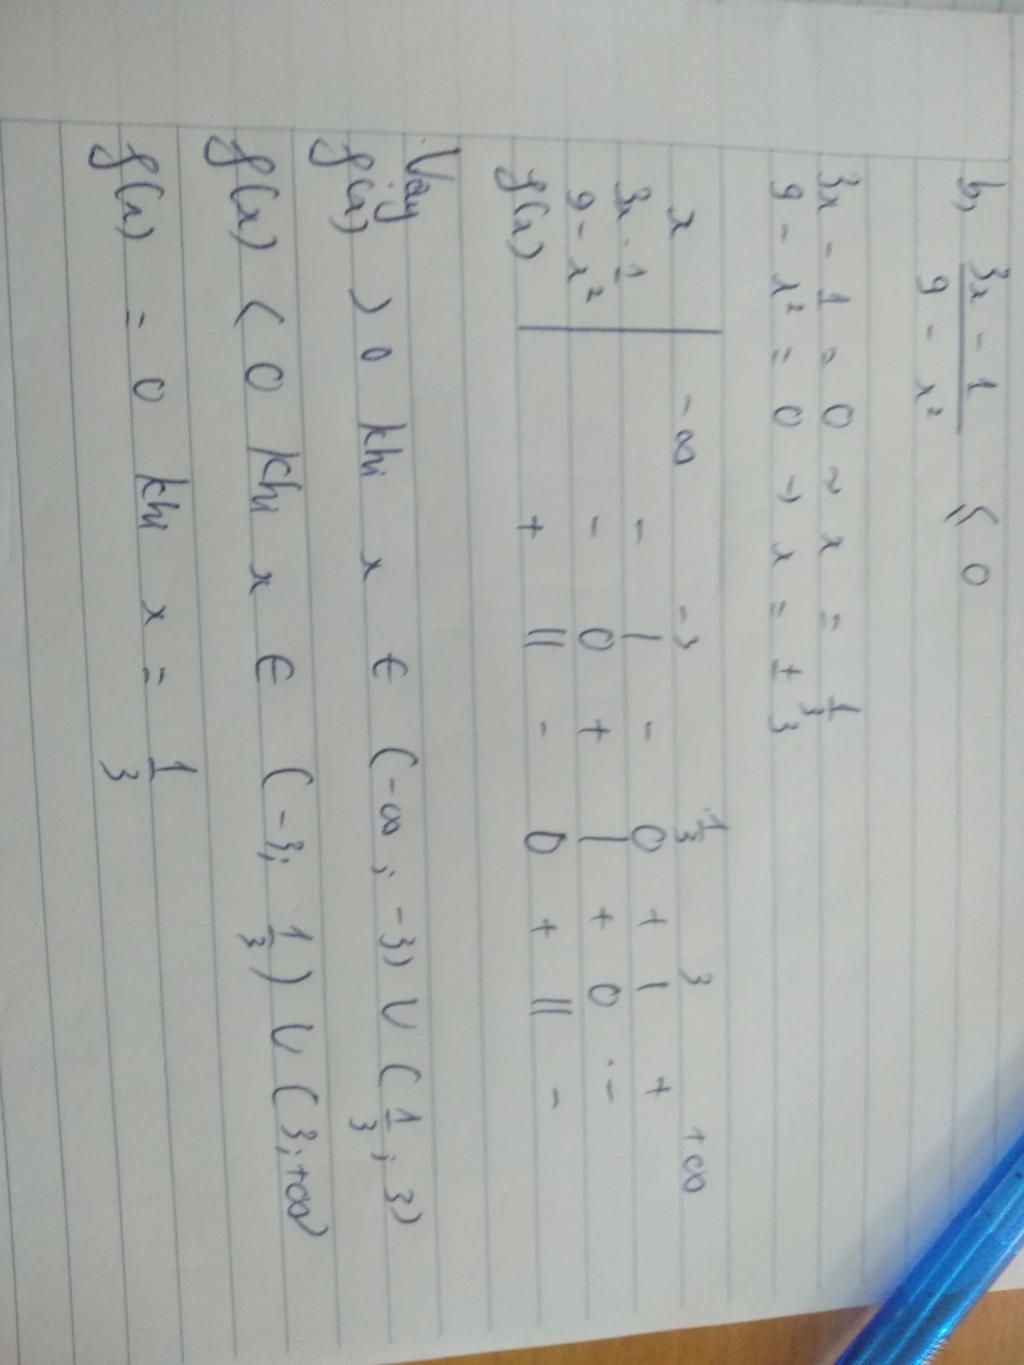 b, 3x - 1 / 9 - x² ≤ 0
3x - 1 = 0 ~ x = 1/3
9 - x² = 0 → x = ± 3
x -∞ -3 1/3 3 +∞
3x - 1 - | - 0 + | +
9 - x² - 0 + | + 0 -
f(x) + || - 0 + || -
Vậy
f(x) > 0 khi x ∈ (-∞; -3) ∪ (1/3; 3)
f(x) < 0 khi x ∈ (-3; 1/3) ∪ (3; +∞)
f(x) = 0 khi x = 1/3